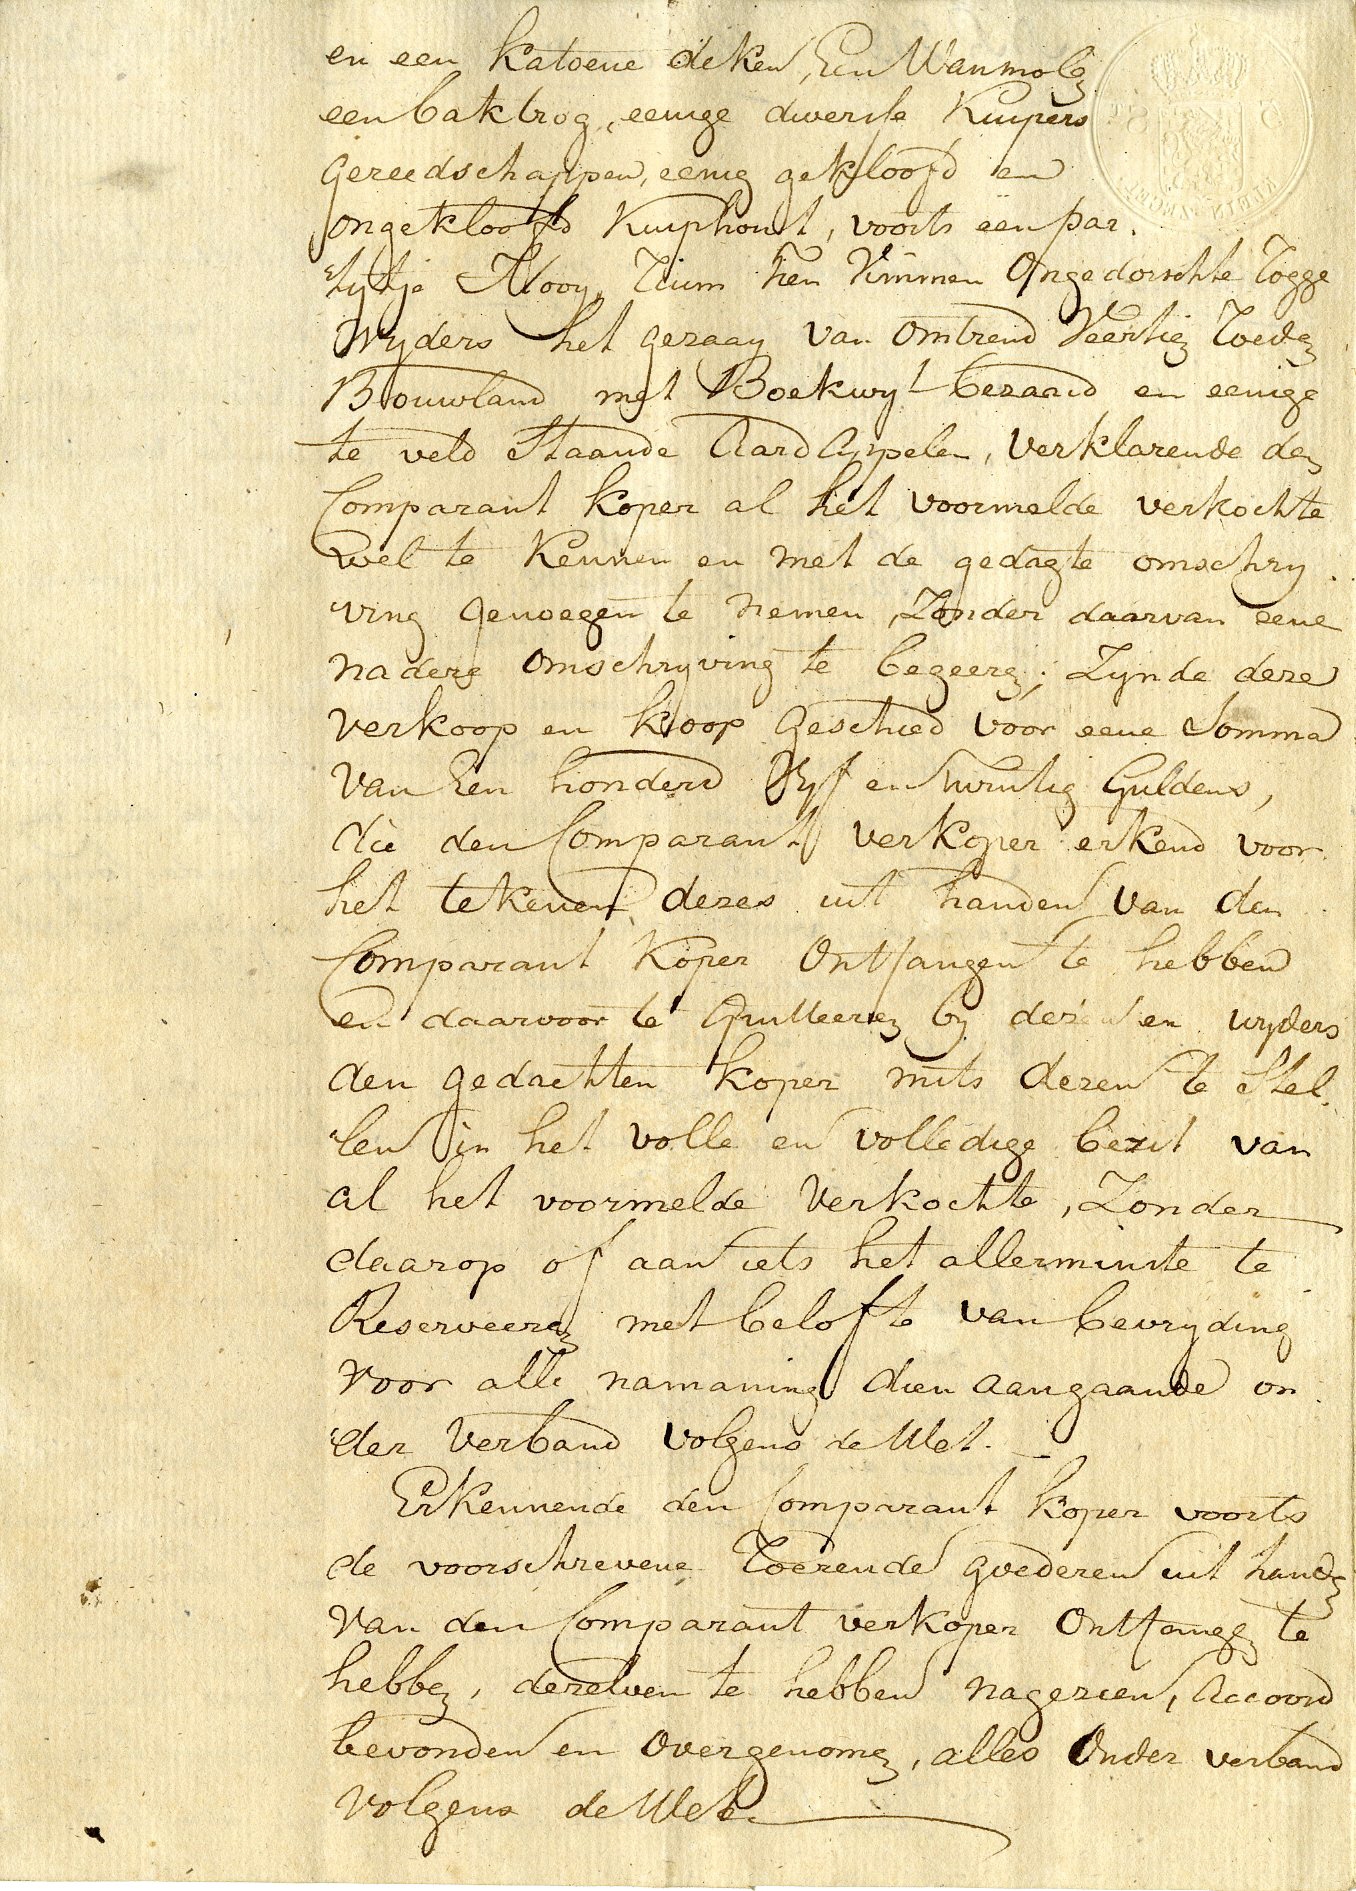 en een katoene deken, Een Wanmolen
een baktrog, eenige diverse Kuipers
gereedschappen, eenig gekloofd en
ongekloofd Kuiphout, voorts een par-
tytje Hooy, Tien vimmen Ongedorschte Rogge
Wyders het gezaay van omtrend Veertig Roeden
Bouwland met Boekwyt bezaaid en eenige
te veld staande Aardappelen, verklarende den
Comparant koper al het voormelde verkochte
wel te kennen en met de gedagte omschry-
ving genoegen te nemen, Zonder daarvan eene
nadere omschryving te begeeren; Zynde deze
verkoop en koop geschied voor eene Somma
van Een honderd Vyf en twintig Guldens,
die den Comparant verkoper erkend voor
het tekenen dezes uit handen van den
Comparant Koper Ontfangen te hebben
en daarvoor te Quitteeren by dezen en wyders
den gedachten koper mits dezen te stel-
len in het volle en volledige bezit van
al het voormelde Verkochte, Zonder
daarop of aan iets het allerminste te
Reserveeren met belofte van bevryding
voor alle namaning dien aangaande on-
der verband volgens de Wet.
Erkennende den Comparant koper voorts
de voorschrevene Roerende goederen uit handen
van den Comparant verkoper Ontfangen te
hebben, dezelven te hebben nagezien, accoord
bevonden en overgenomen, alles onder verband
volgens de Wet.